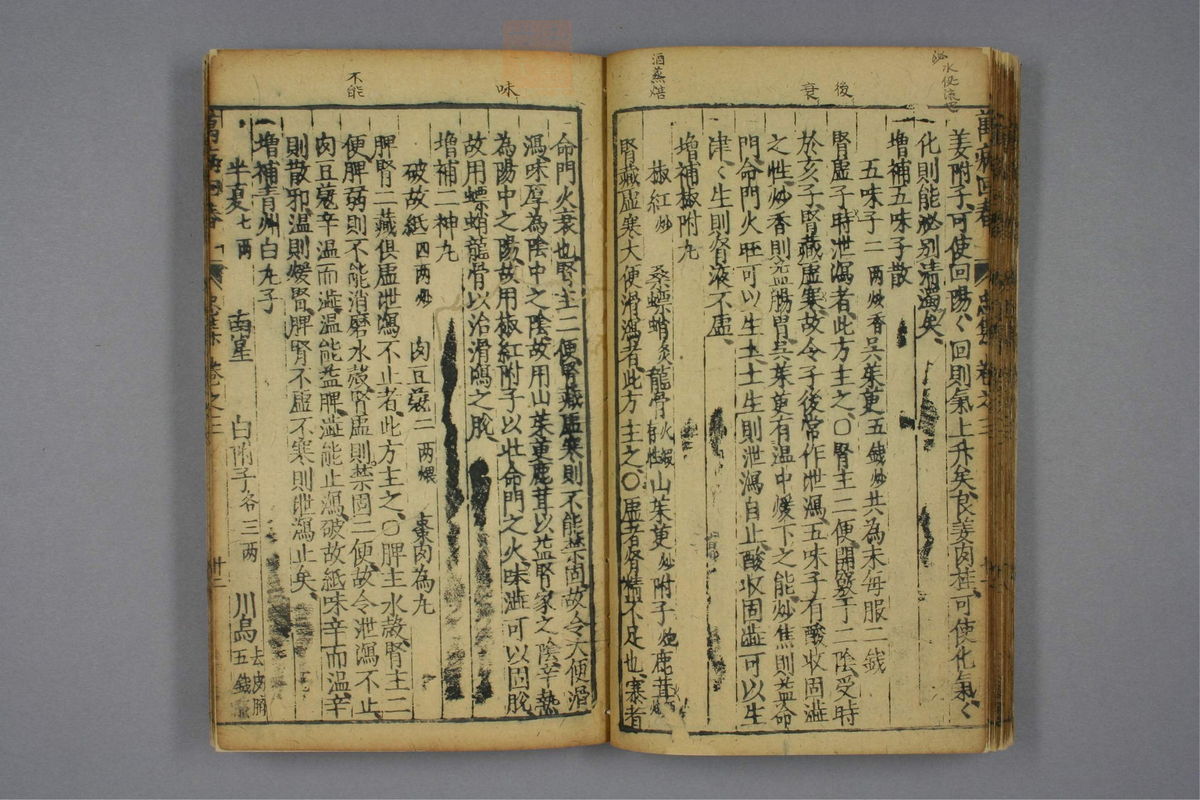 酒蒸焙
衰
後
姜附子可使回陽〻回則氣上升矣良姜肉桂可使化氣〻
化則能泌別清濁矣
增補五味子散
五味子二兩炒香吳茱萸五錢炒共為末每服二錢
腎虛子時泄瀉者此方主之〇腎主二便開竅于二陰受時
於亥子腎藏虛寒故令子後常作泄瀉五味子有酸收固澁
之性炒香則益腸胃吳茱萸有溫中煖下之能炒焦則益命
門命門火旺可以生土土生則泄瀉自止酸收固澁可以生
津〻生則腎液不虛
增補椒附丸
椒紅炒 桑螵蛸炙龍骨火煅存性山茱萸炒附子炮鹿茸焙
腎藏虛寒大便滑瀉者此方主之〇虛者腎精不足也寒者
萬病回春 忠集 卷之三
味
不能
命門火衰也腎主二便腎藏虛寒則不能禁固故令大便滑
瀉味厚為陰中之陰故用山茱萸鹿茸以益腎家之陰辛熱
為陽中之陽故用椒紅附子以壯命門之火味澁可以固脫
故用螵蛸龍骨以治滑瀉之脫
增補二神丸
破故紙四兩炒 肉豆蔻二兩煨 棗肉為丸
脾腎二藏俱虛泄瀉不止者此方主之〇脾主水穀腎主二
便脾弱則不能消磨水穀腎虛則禁固二便故令泄瀉不止
肉豆蔻辛溫而澁溫能益脾澁能止瀉破故紙味辛而溫辛
則散邪溫則煖腎脾腎不虛不寒則泄瀉止矣
增補青州白丸子
半夏七兩 南星 白附子各三兩 川烏去皮臍五錢
萬病回春 忠集 卷之三 卄二